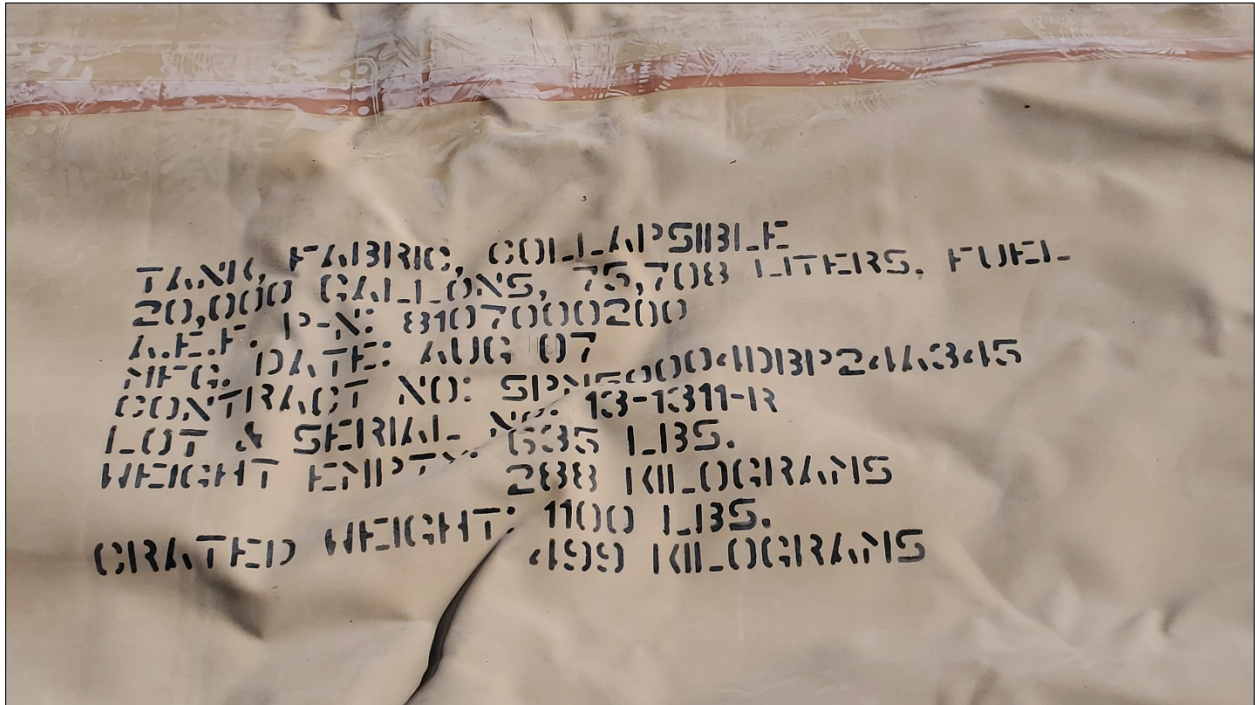 TANK, FABRIC, COLLAPSIBLE
20,000 GALLONS, 75,708 LITERS, FUEL
A.E.F. P-N: 8107000200
MFG. DATE: AUG 07
CONTRACT NO: SPM50004DBP24A345
LOT & SERIAL NO: 13-1311-R
WEIGHT EMPTY: 635 LBS.
288 KILOGRAMS
CRATED WEIGHT: 1100 LBS.
499 KILOGRAMS